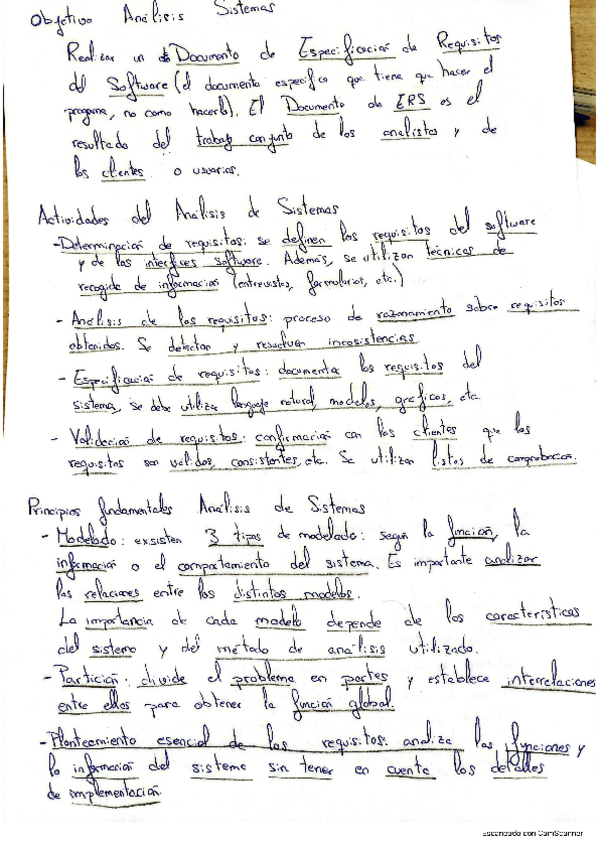 Objetivo Análisis Sistemas
Realizar un Documento de Especificación de Requisitos
del Software (el documento especifica que tiene que hacer el
programa, no como hacerlo). El Documento de ERS es el
resultado del trabajo conjunto de los analistas y de
los clientes o usuarios.
Actividades del Análisis de Sistemas
-Determinación de requisitos: se definen los requisitos del software
y de las interfases software. Además, se utilizan técnicas de
recogida de información (entrevistas, formularios, etc.)
- Análisis de los requisitos: proceso de razonamiento sobre requisitos
obtenidos. Se detectan y resuelven incosistencias
- Especificación de requisitos: documentar los requisitos del
sistema, se debe utilizar lenguaje natural, modelos, gráficos, etc
- Validación de requisitos: confirmación con los clientes que los
requisitos son válidos, consistentes, etc. Se utilizan listas de comprobación.
Principios fundamentales Análisis de Sistemas
- Modelado: exsisten 3 tipos de modelado: según la función, la
información o el comportamiento del sistema. Es importante analizar
las relaciones entre los distintos modelos.
La importancia de cada modelo depende de las características
del sistema y del método de análisis utilizado.
- Partición: divide el problema en partes y establece interrelaciones
entre ellas para obtener la función global.
- Planteamiento esencial de los requisitos: analiza las funciones y
la información del sistema sin tener en cuenta los detalles
de implementación.
Escaneado con CamScanner